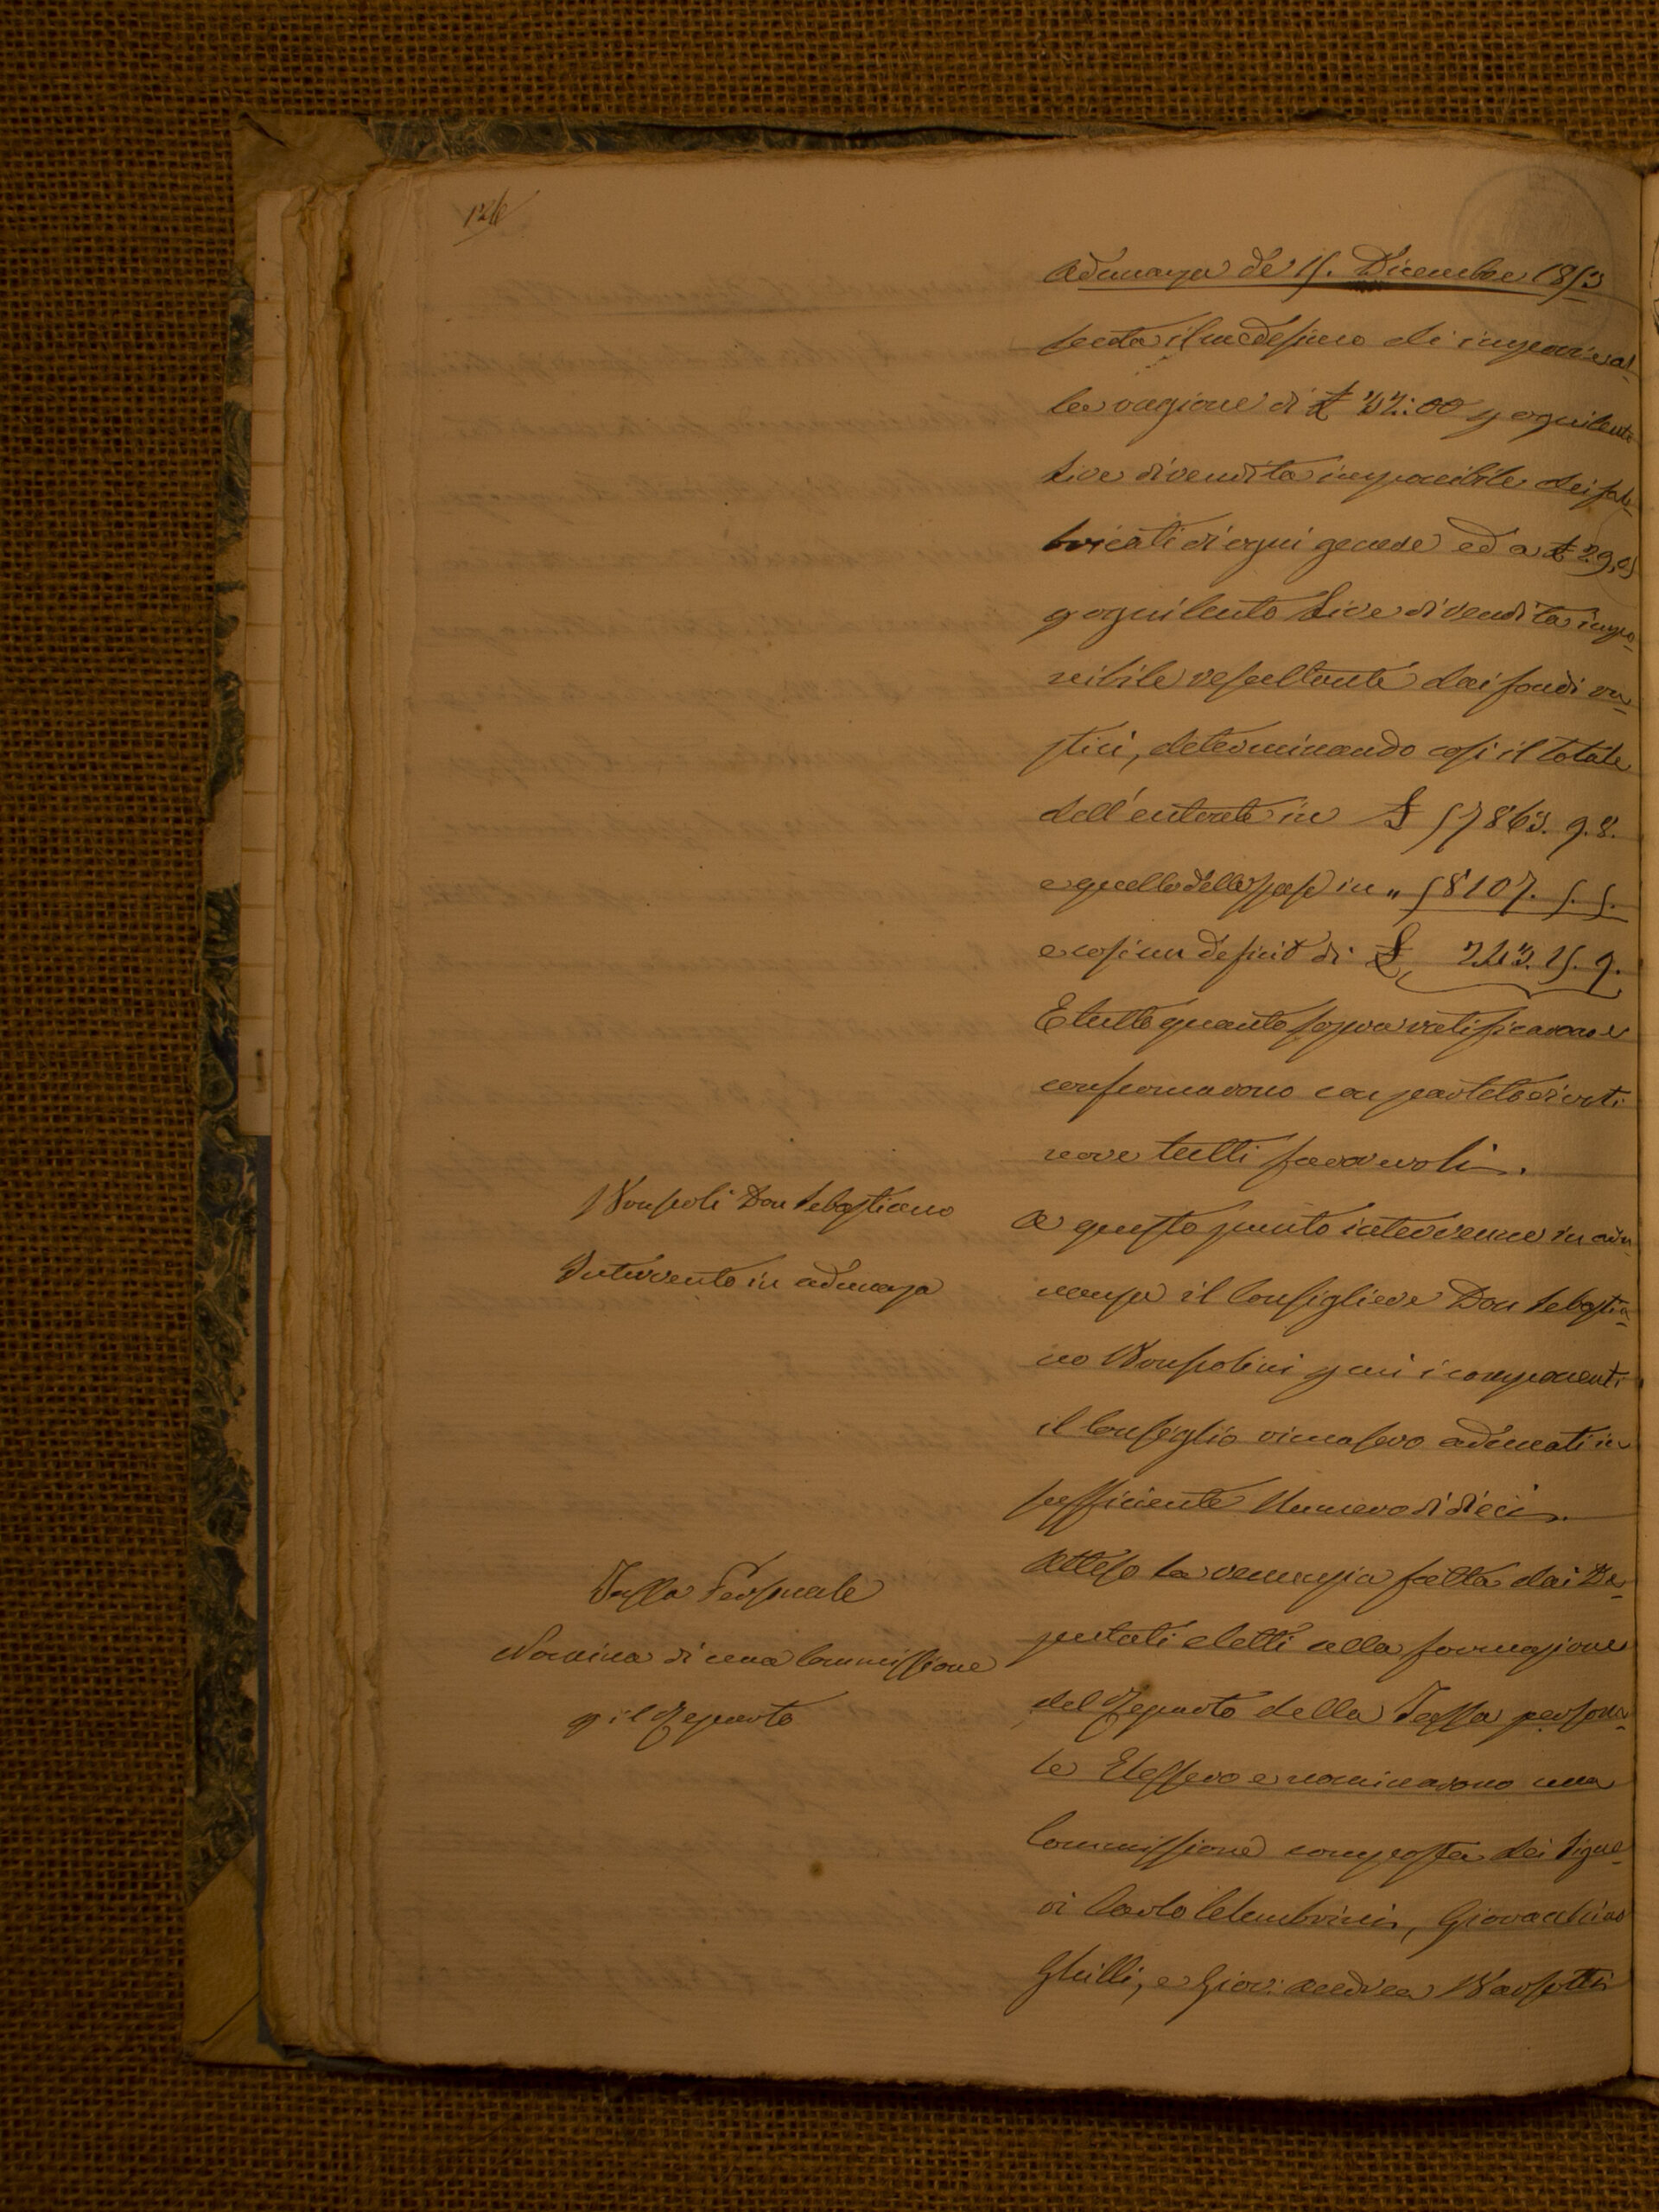 126
Adunanza de 15. Dicembre 1853
senta il medesimo di imporre al-
la ragione di £ 32:00 p ogni cento
Lire di rendita imponibile dei fab-
bricati di ogni genere ed a £ 29,05
p ogni cento Lire di rendita impo-
nibile resultante dai fondi ru-
stici, determinando così il totale
dell'entrate in £ 57863. 9. 8.
e quello delle spese in " 58107. 5. 5.
e così un deficit di £ 243. 15. 9.
E tutto quanto sopra ratificarono e
confermarono con partito di voti
nove tutti favorevoli.
Don Sebastiano
Intervento in adunanza
A questo punto intervenne in adu-
nanza il Consigliere Don Sebastia-
no p cui i componenti
il Consiglio rimasero adunati in
sufficiente Numero di dieci.
Tassa Personale
Nomina di una Commissione
p il Reparto
Atteso la renunzia fatta dai De-
putati eletti alla formazione
del Reparto della Tassa persona-
le Elessero e nominarono una
Commissione composta dei Signo-
ri Carlo Celembrini, Giovacchino
Ghilli, e Giov: Andrea